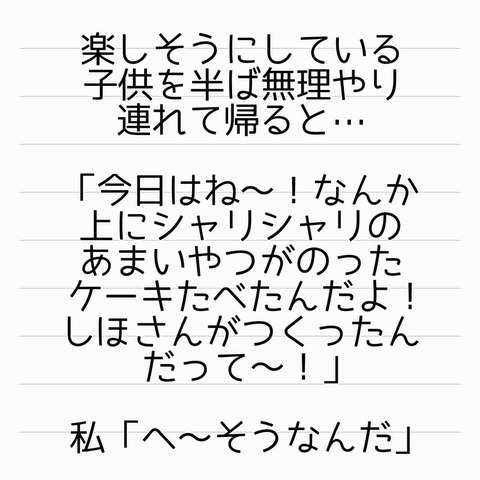 楽しそうにしている
子供を半ば無理やり
連れて帰ると…
「今日はね〜！なんか
上にシャリシャリの
あまいやつがのった
ケーキたべたんだよ！
しほさんがつくったん
だって〜！」
私「へ〜そうなんだ」